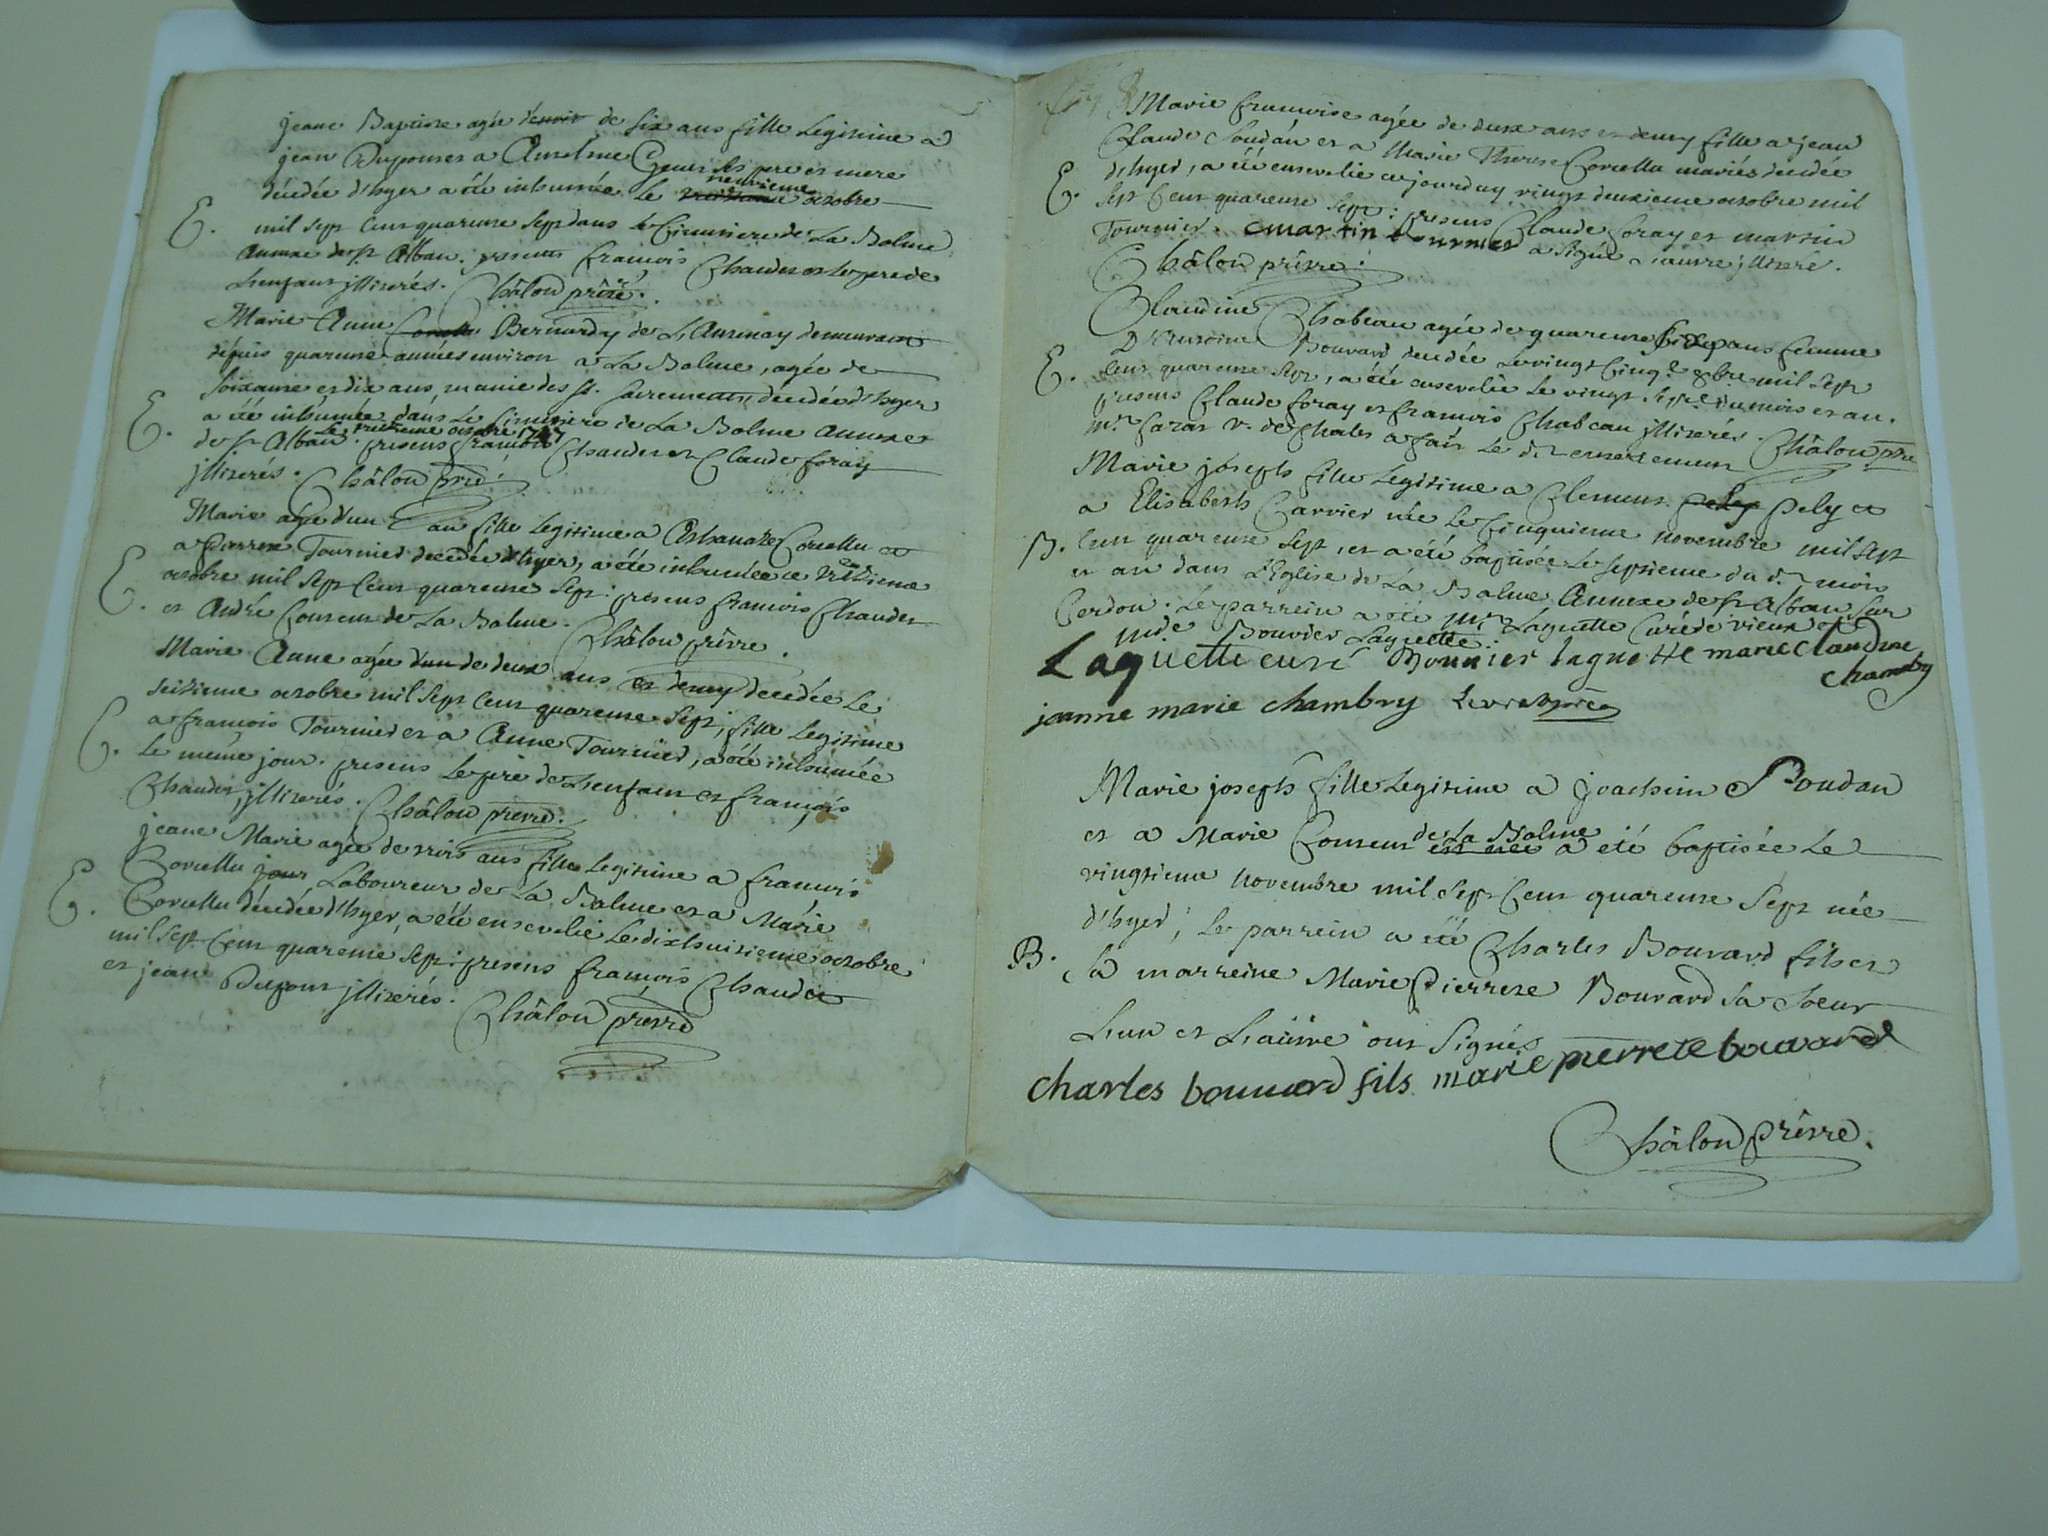 jeane Baptiste agée denvir de six ans fille Legitime a
jean Dupont et a Anselme ses pere et mere
décédée d'hyer a été inhumée Le neuvieme octobre
E. mil sept cent quarente sept dans le Cimetiere de La Balme
annexe de st Alban. presents francois Chaudet et le pere de
L'enfant illiterés. Châlon prêtre.
Marie Anne Bernardy de L'Antenay demeurant
dépuis quarente années environ a La Balme, agée de
soixante et dix ans, munie des st. sacrements, decédée d'hyer
E. a été inhumée dans Le Cimetiere de La Balme annexe
Le treizieme octobre 1747
de st Alban. presens francois Chaudet et Claude foray
illiterés. Châlon ptre.
Marie agée d'un an fille Legitime a Athanaze Corcellu et
a pierrete Tournier decedée d'hyer, a été inhumée ce treizieme
E. octobre mil sept Cent quarente sept: presens francois Chaudet
et André Couteur de La Balme. Châlon prêtre.
Marie Anne agée d'un de deux ans et demy decédée Le
seizieme octobre mil sept Cent quarente sept, fille Legitime
a francois Tournier et a Anne Tournier, a été inhumée
E. Le même jour. presens Le pere de L'enfant et françois
Chaudet, illiterés. Châlon prêtre.
jeane Marie agée de trois ans fille Legitime a francois
Corcellu Laboureur de La Balme et a Marie
E. Corcellu décédée d'hyer, a été ensevelie Le dixhuitieme octobre
mil sept Cent quarente sept: presens francois Chaudet
et jean Dupont illiterés. Châlon prêtre
Marie francoise agée de deux ans et demy fille a jean
Claude Soudan et a Marie Therese Corcellu mariés decedée
E. d'hyer, a été ensevelie ce jourduy vingt deuxieme octobre mil
sept Cent quarente sept: presens Claude foray et martin
Tournier. martin tournier a signé L'autre illiteré.
Châlon prêtre.
Claudine Chabeau agée de quarente sept ans femme
D'Antoine Bouvard decedée Le vingt cinq.e 8bre mil sept
E. Cent quarente sept, a été ensevelie Le vingt sept.e du mois et an.
presens Claude foray et francois Chabeau illiterés.
mr. Cazat v. de Chales a fait Le dt enterrement Châlon ptre
Marie joseph fille Legitime a Clement Pely et
a Elisabeth Carrier née Le Cinquieme novembre mil sept
B. Cent quarente sept, et a été baptisée Le septieme du dt mois
et an dans L'Eglise de La Balme Annexe de st Alban sur
Cerdon. Le parrein a été mr. Laguette Curé de vieux et
md.e Bouvier Laguette.
Laguette curé Bouvier laguette marie claudine
chambry
jeanne marie chambry
Marie joseph fille Legitime a joachim Boudan
et a Marie Couteur de La Balme a été baptisée Le
vingtieme novembre mil sept Cent quarente sept née
d'hyer; Le parrein a été Charles Bouvard fils et
B. Sa marreine Marie Pierrete Bouvard sa soeur
L'un et L'autre ont signés
charles bouuard fils marie pierrete bouvard
Châlon prêtre.